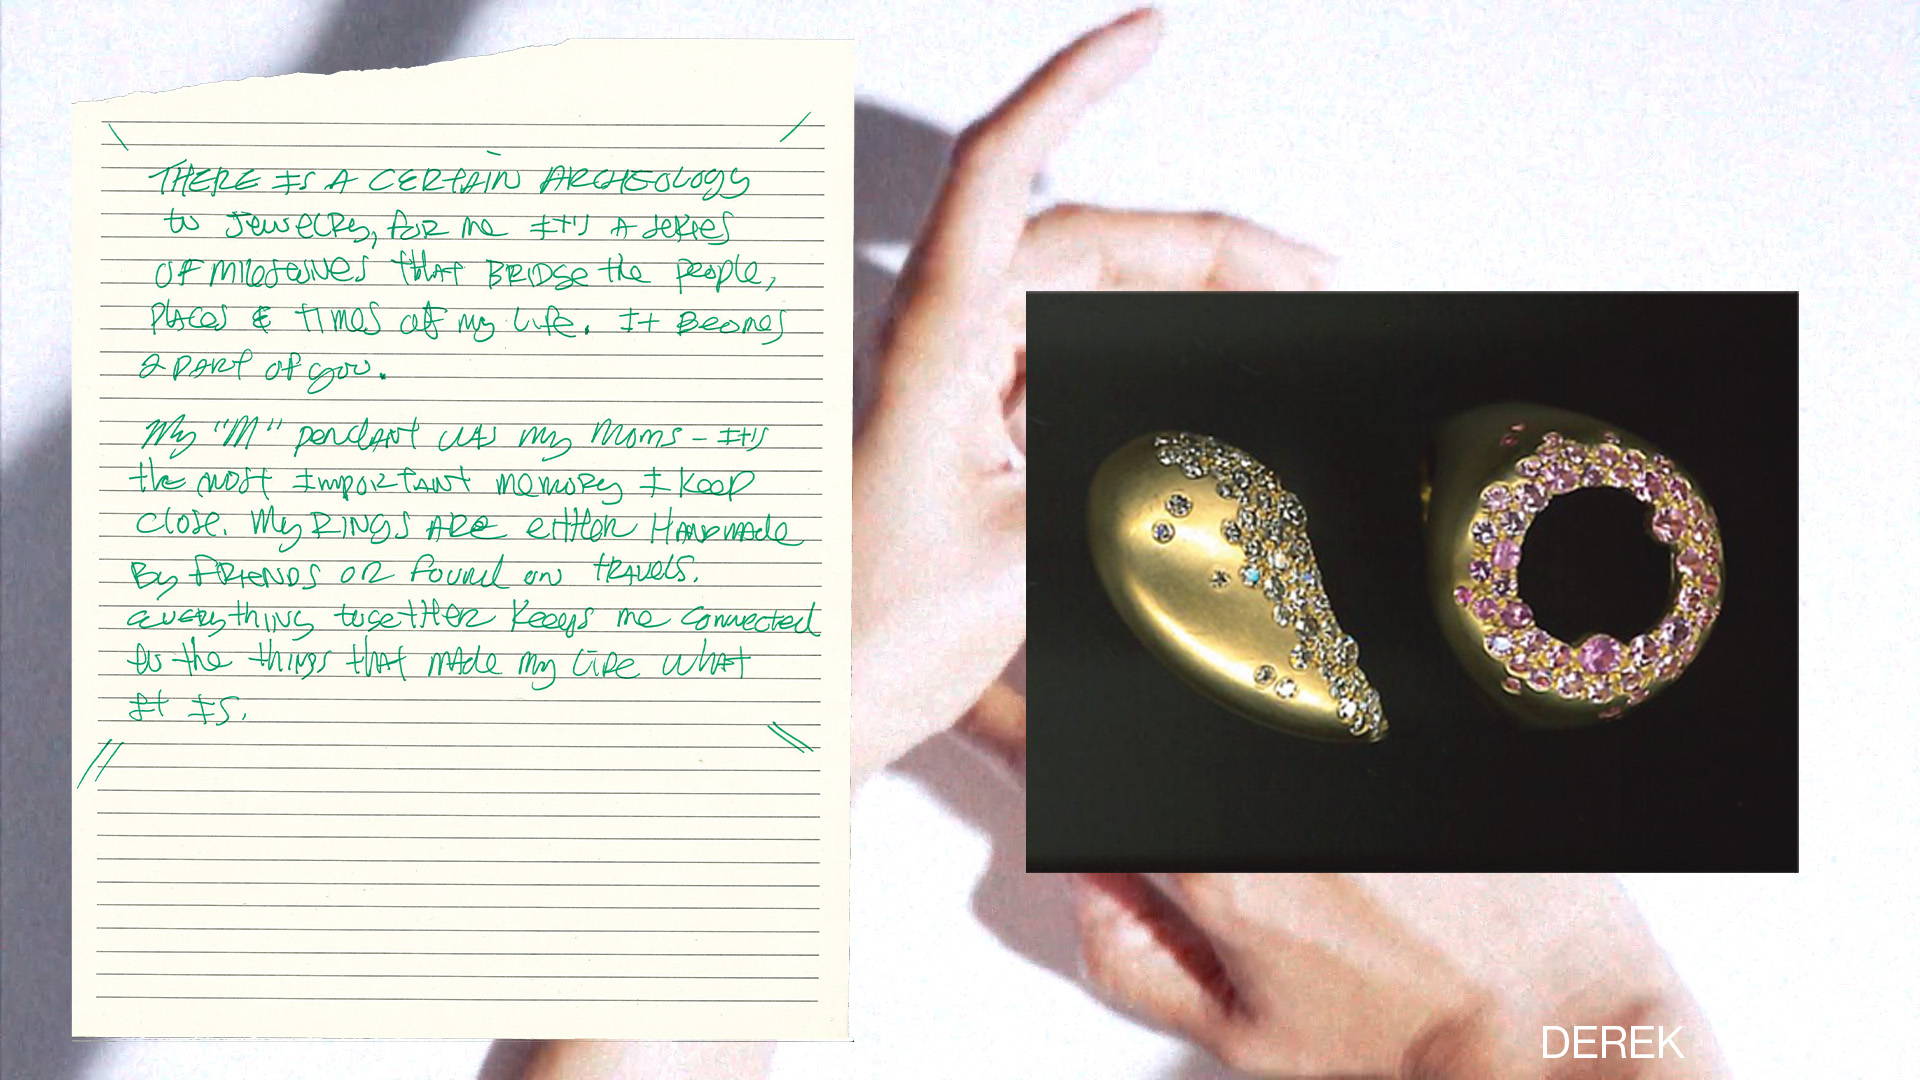 THERE IS A CERTAIN ARCHEOLOGY
to JEWELRY, FOR me IT'S A SERIES
OF MILESTONES that BRIDGE the people,
PLACES & TIMES of my Life. It Becomes
a PART of you.
My "M" pendant WAS my Moms - IT'S
the most Important memory I keep
close. My RINGS ARE either Handmade
By FRIENDS OR found on TRAVELS.
everything together keeps me connected
to the things that made my life what
it is.
DEREK